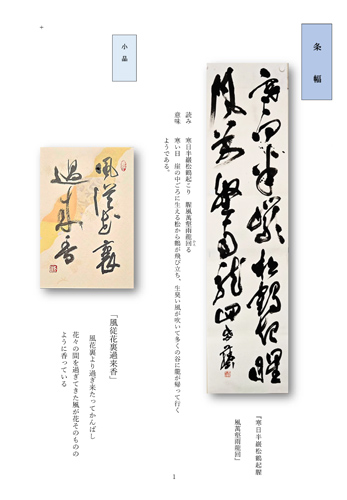 条幅
寒日半巌松鶴起腥
風萬壑雨龍回
『寒日半巌松鶴起腥
風萬壑雨龍回』
読み　寒日半巌松鶴起こり　腥風萬壑雨龍回る
意味　寒い日　崖の中ごろに生える松から鶴が飛び立ち、生臭い風が吹いて多くの谷に龍が帰って行く
ようである。
小品
風従花裏
過来香
「風従花裏過来香」
風花裏より過ぎ来たってかんばし
花々の間を過ぎてきた風が花そのものの
ように香っている
1